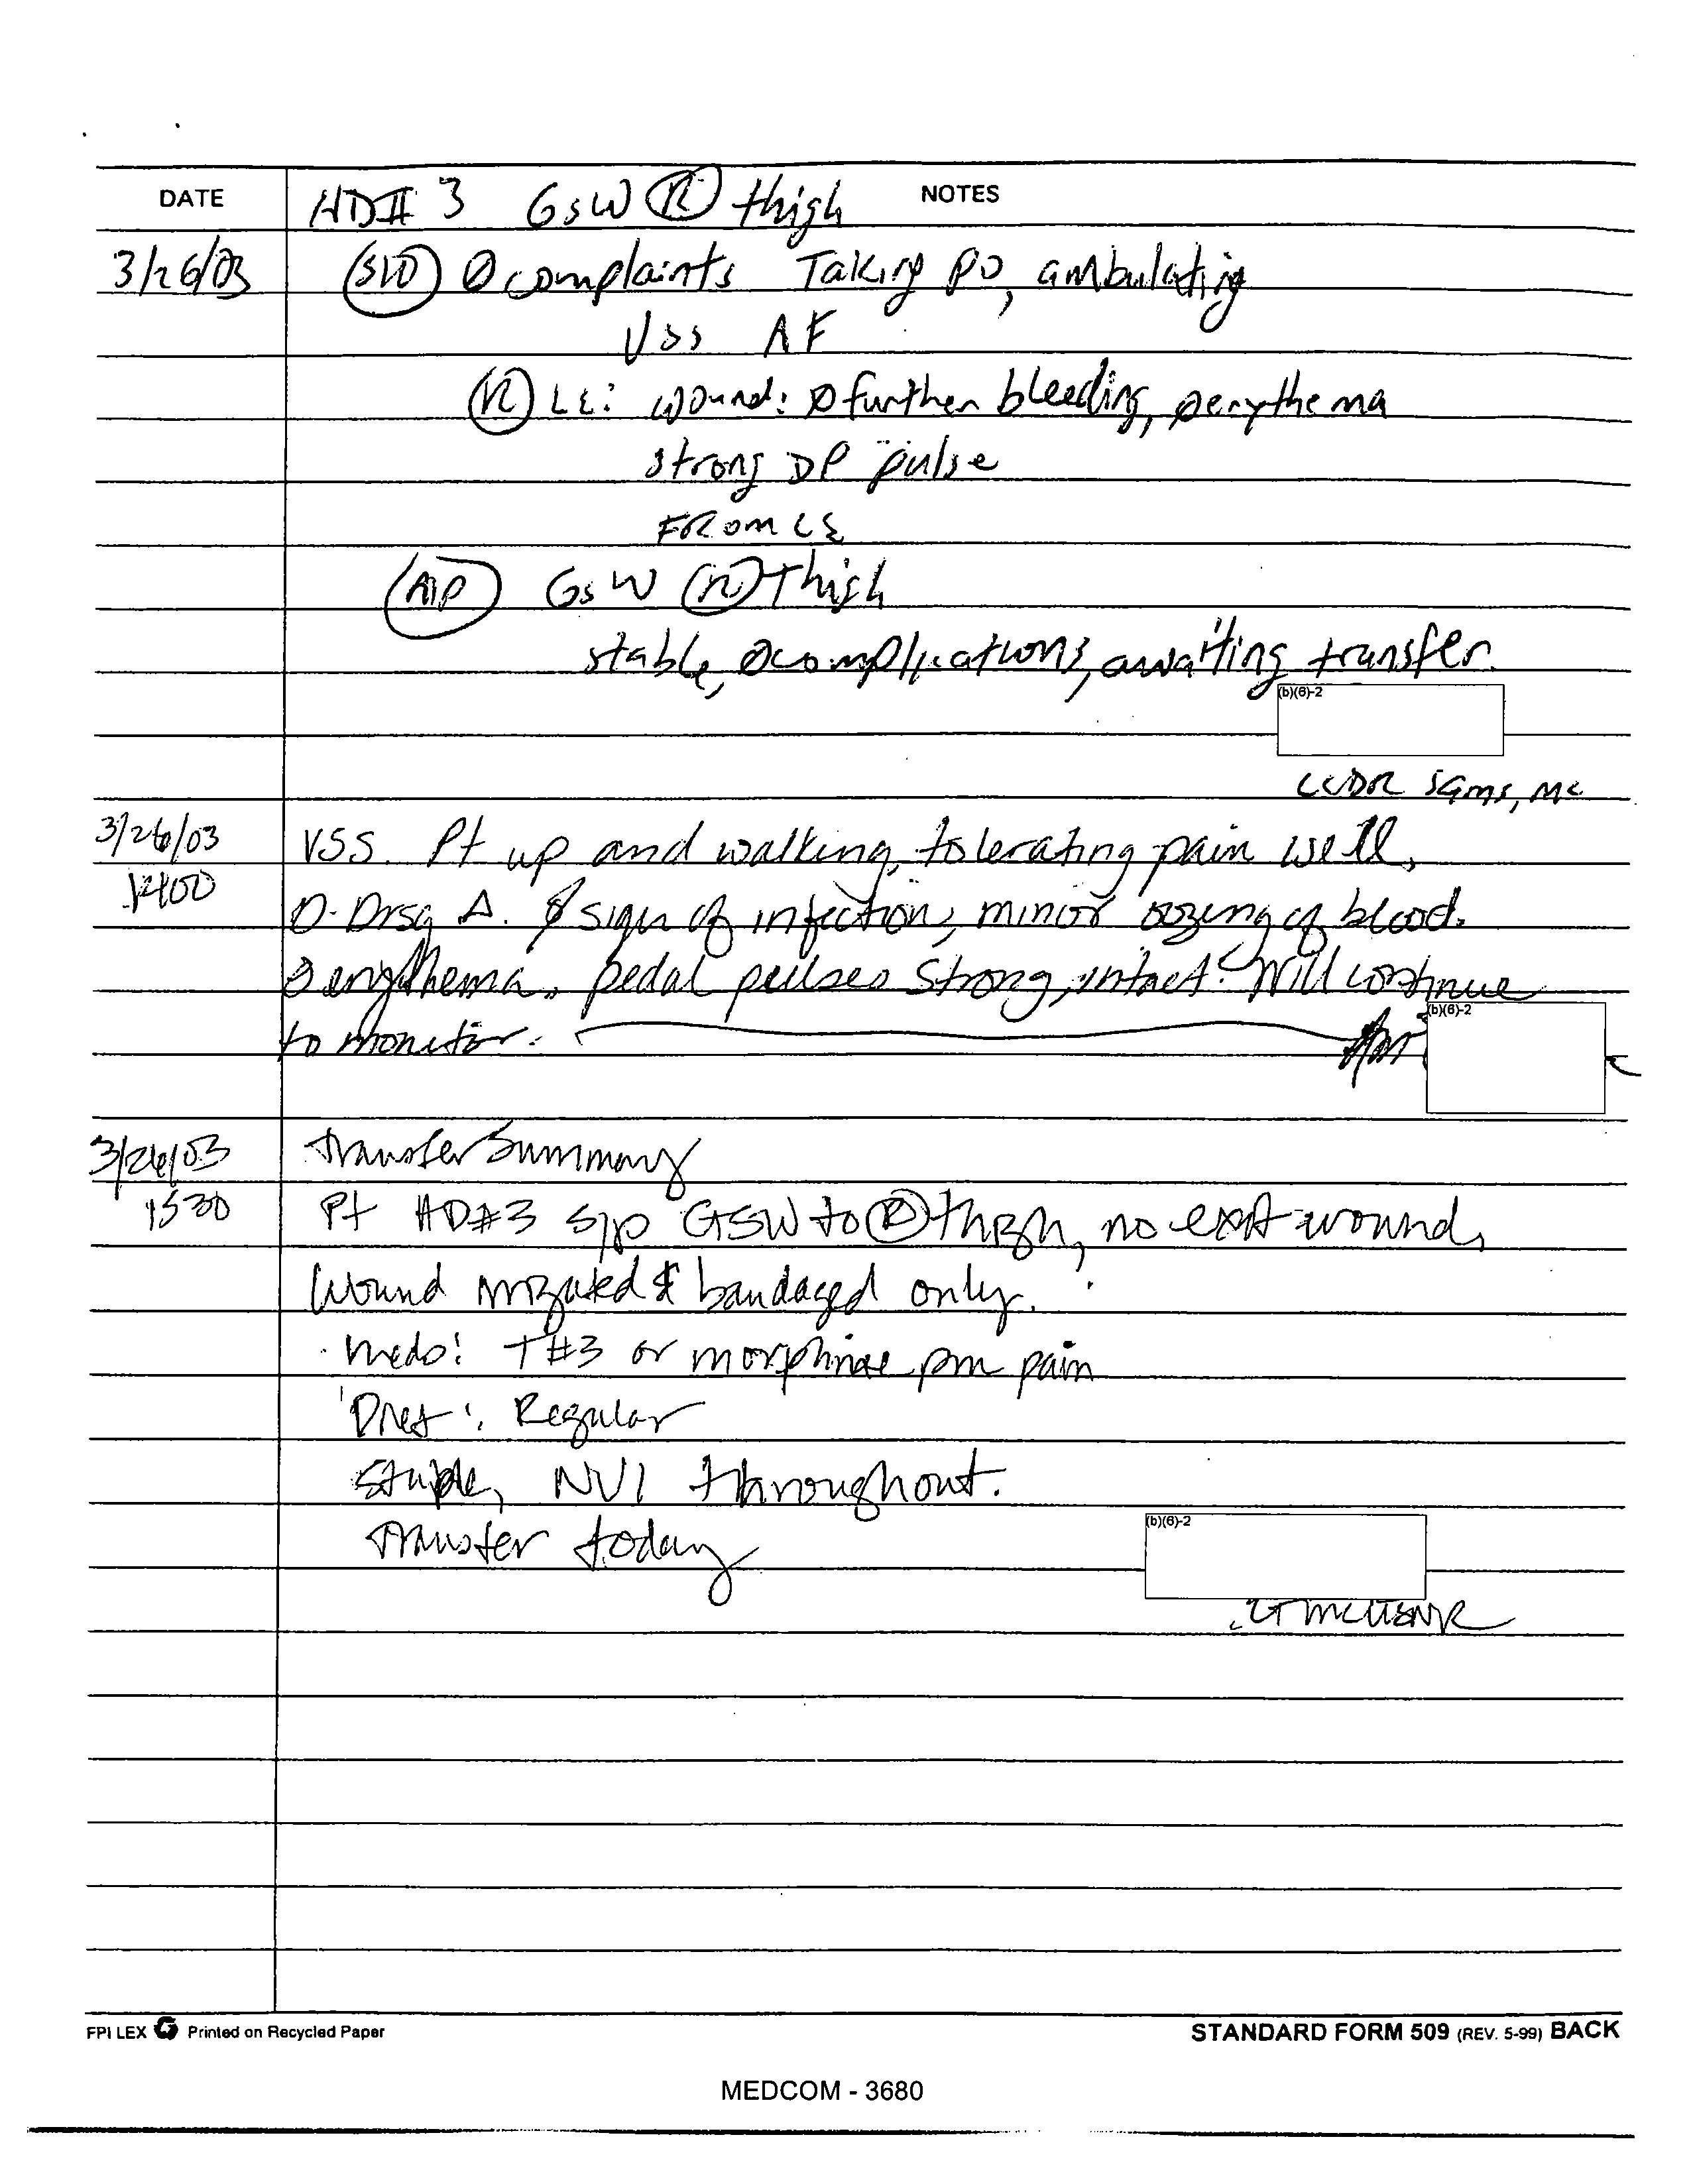 DATE NOTES
HD# 3 GSW Ⓡ thigh
3/26/03 S/O Ø complaints Taking po, ambulating
VSS AF
Ⓡ LE: wound: Ø further bleeding, Ø erythema
strong DP pulse
FROM LE
A/P GSW Ⓡ Thigh
stable, Ø complications, awaiting transfer.
(b)(6)-2
LCDR MC
3/26/03 VSS. Pt up and walking, tolerating pain well.
1400 D-Drsg Δ. Ø sign of infection, minor oozing of blood.
Ø erythema. pedal pulses strong, intact. Will continue
to monitor.
(b)(6)-2
3/26/03 Transfer Summary
1530 Pt HD#3 s/p GSW to Ⓡ thigh, no exit wound,
Wound irrigated & bandaged only.
Meds: T#3 or morphine prn pain
Diet: Regular
Stable, NVI throughout.
Transfer today
(b)(6)-2
LT MC USNR
FPI LEX Printed on Recycled Paper
STANDARD FORM 509 (REV. 5-99) BACK
MEDCOM - 3680